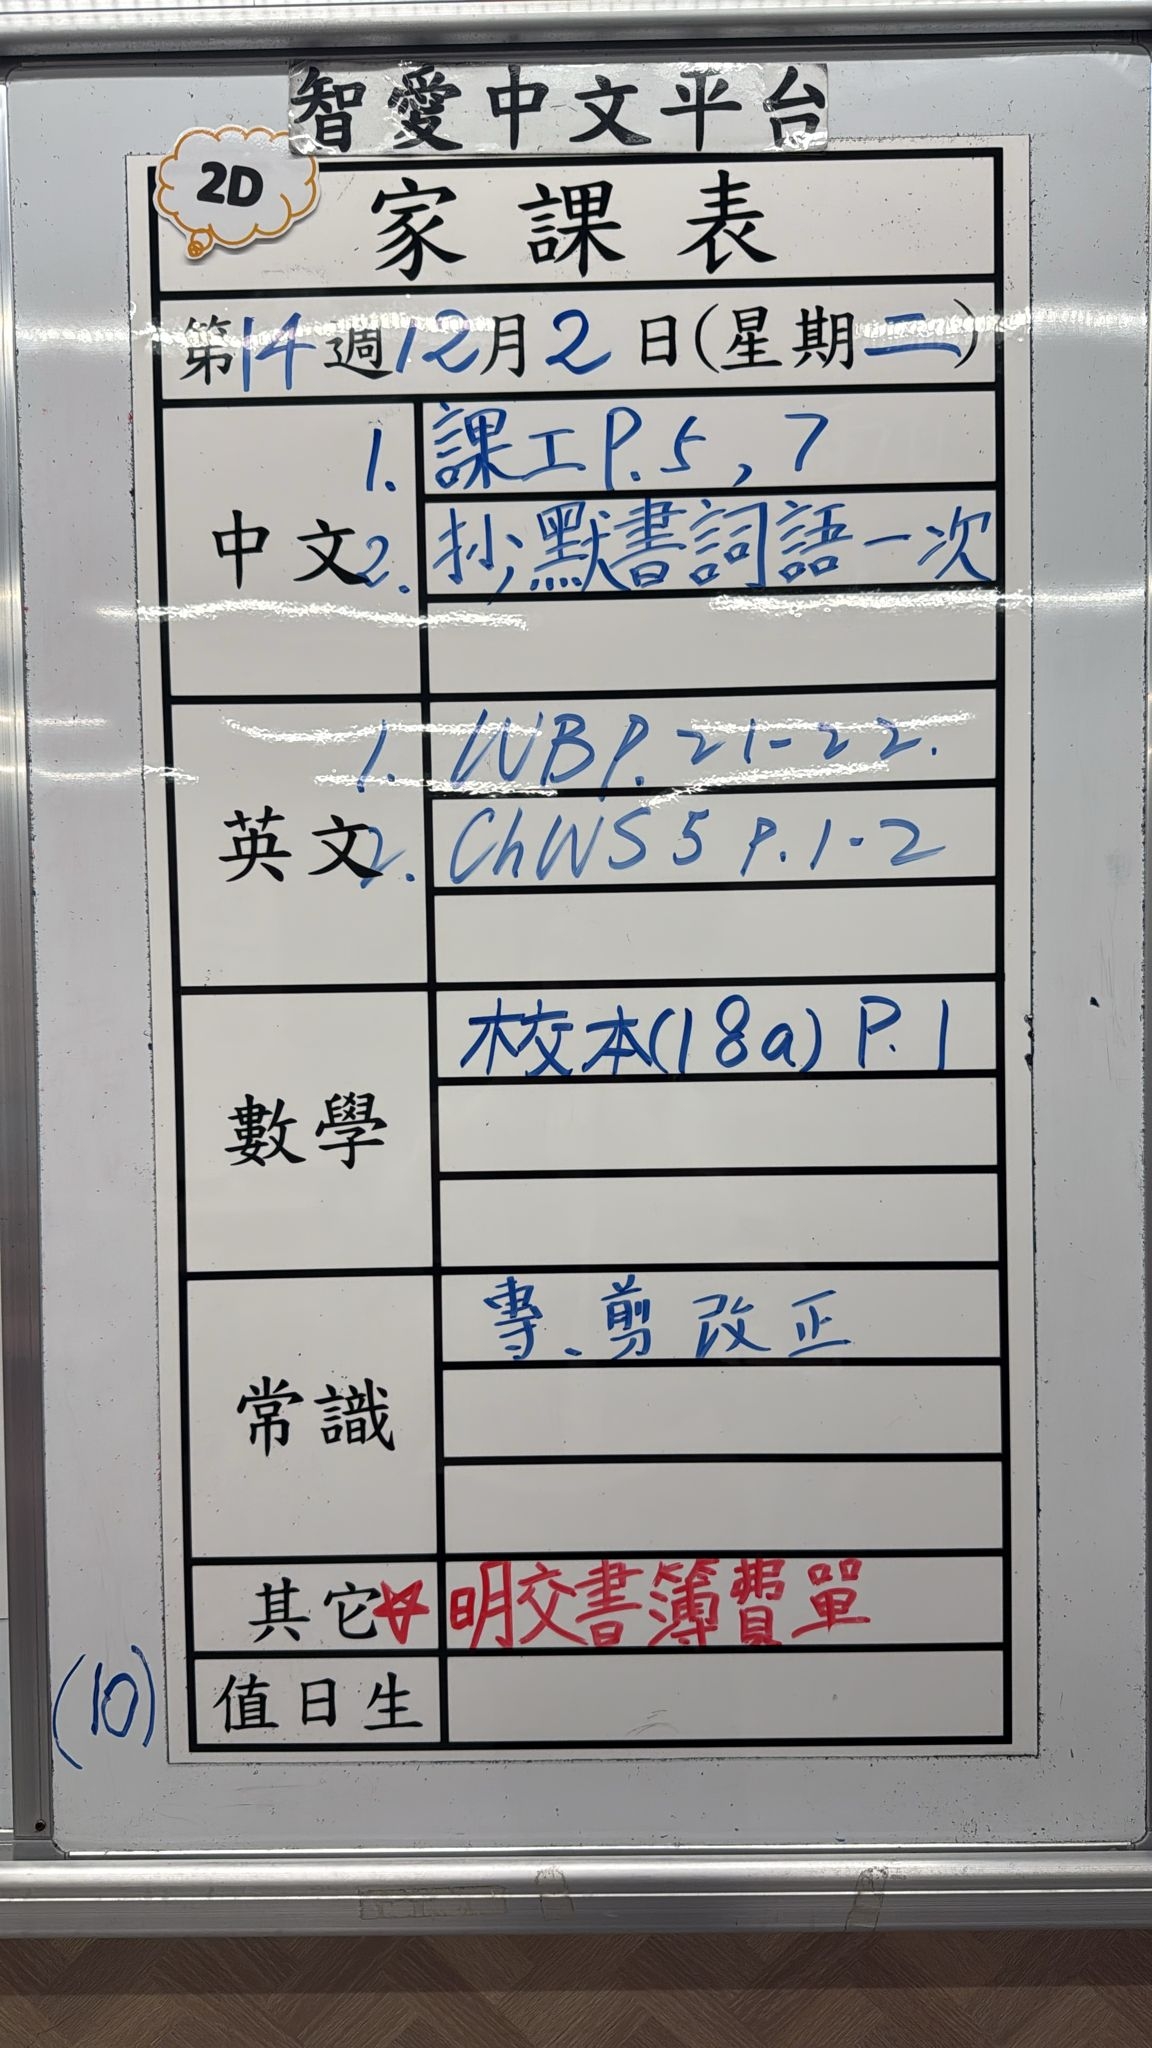 智愛中文平台
2D
家課表
第14週12月2日(星期二)
中文
1. 課工P.5, 7
2. 抄默書詞語一次
英文
1. WB P. 21-22.
2. Ch WS 5 P. 1-2
數學
校本(18a) P. 1
常識
專、剪 改正
其它
☆ 明交書簿費單
值日生
(10)